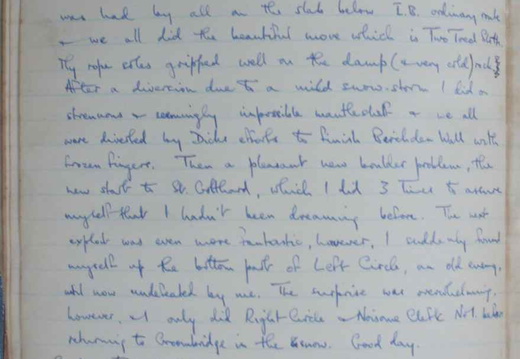 was had by all on the slab below I.B. ordinary route
& we all did the beautiful move which is Two Toed Sloth.
My rope soles gripped well on the damp (& very cold) rock
After a diversion due to a mild snow-storm I did a
strenuous & seemingly impossible mantleshelf & we all
were diverted by Dicks efforts to finish Birchden Wall with
frozen fingers. Then a pleasant new boulder problem, the
new start to St. Gotthard, which I did 3 times to assure
myself that I hadn't been dreaming before. The next
exploit was even more fantastic, however, I suddenly found
myself up the bottom part of Left Circle, an old enemy,
until now undefeated by me. The surprise was overwhelming,
however, & I only did Right Circle & Noisome Cleft No 1 before
returning to Groombridge in the snow. Good day.